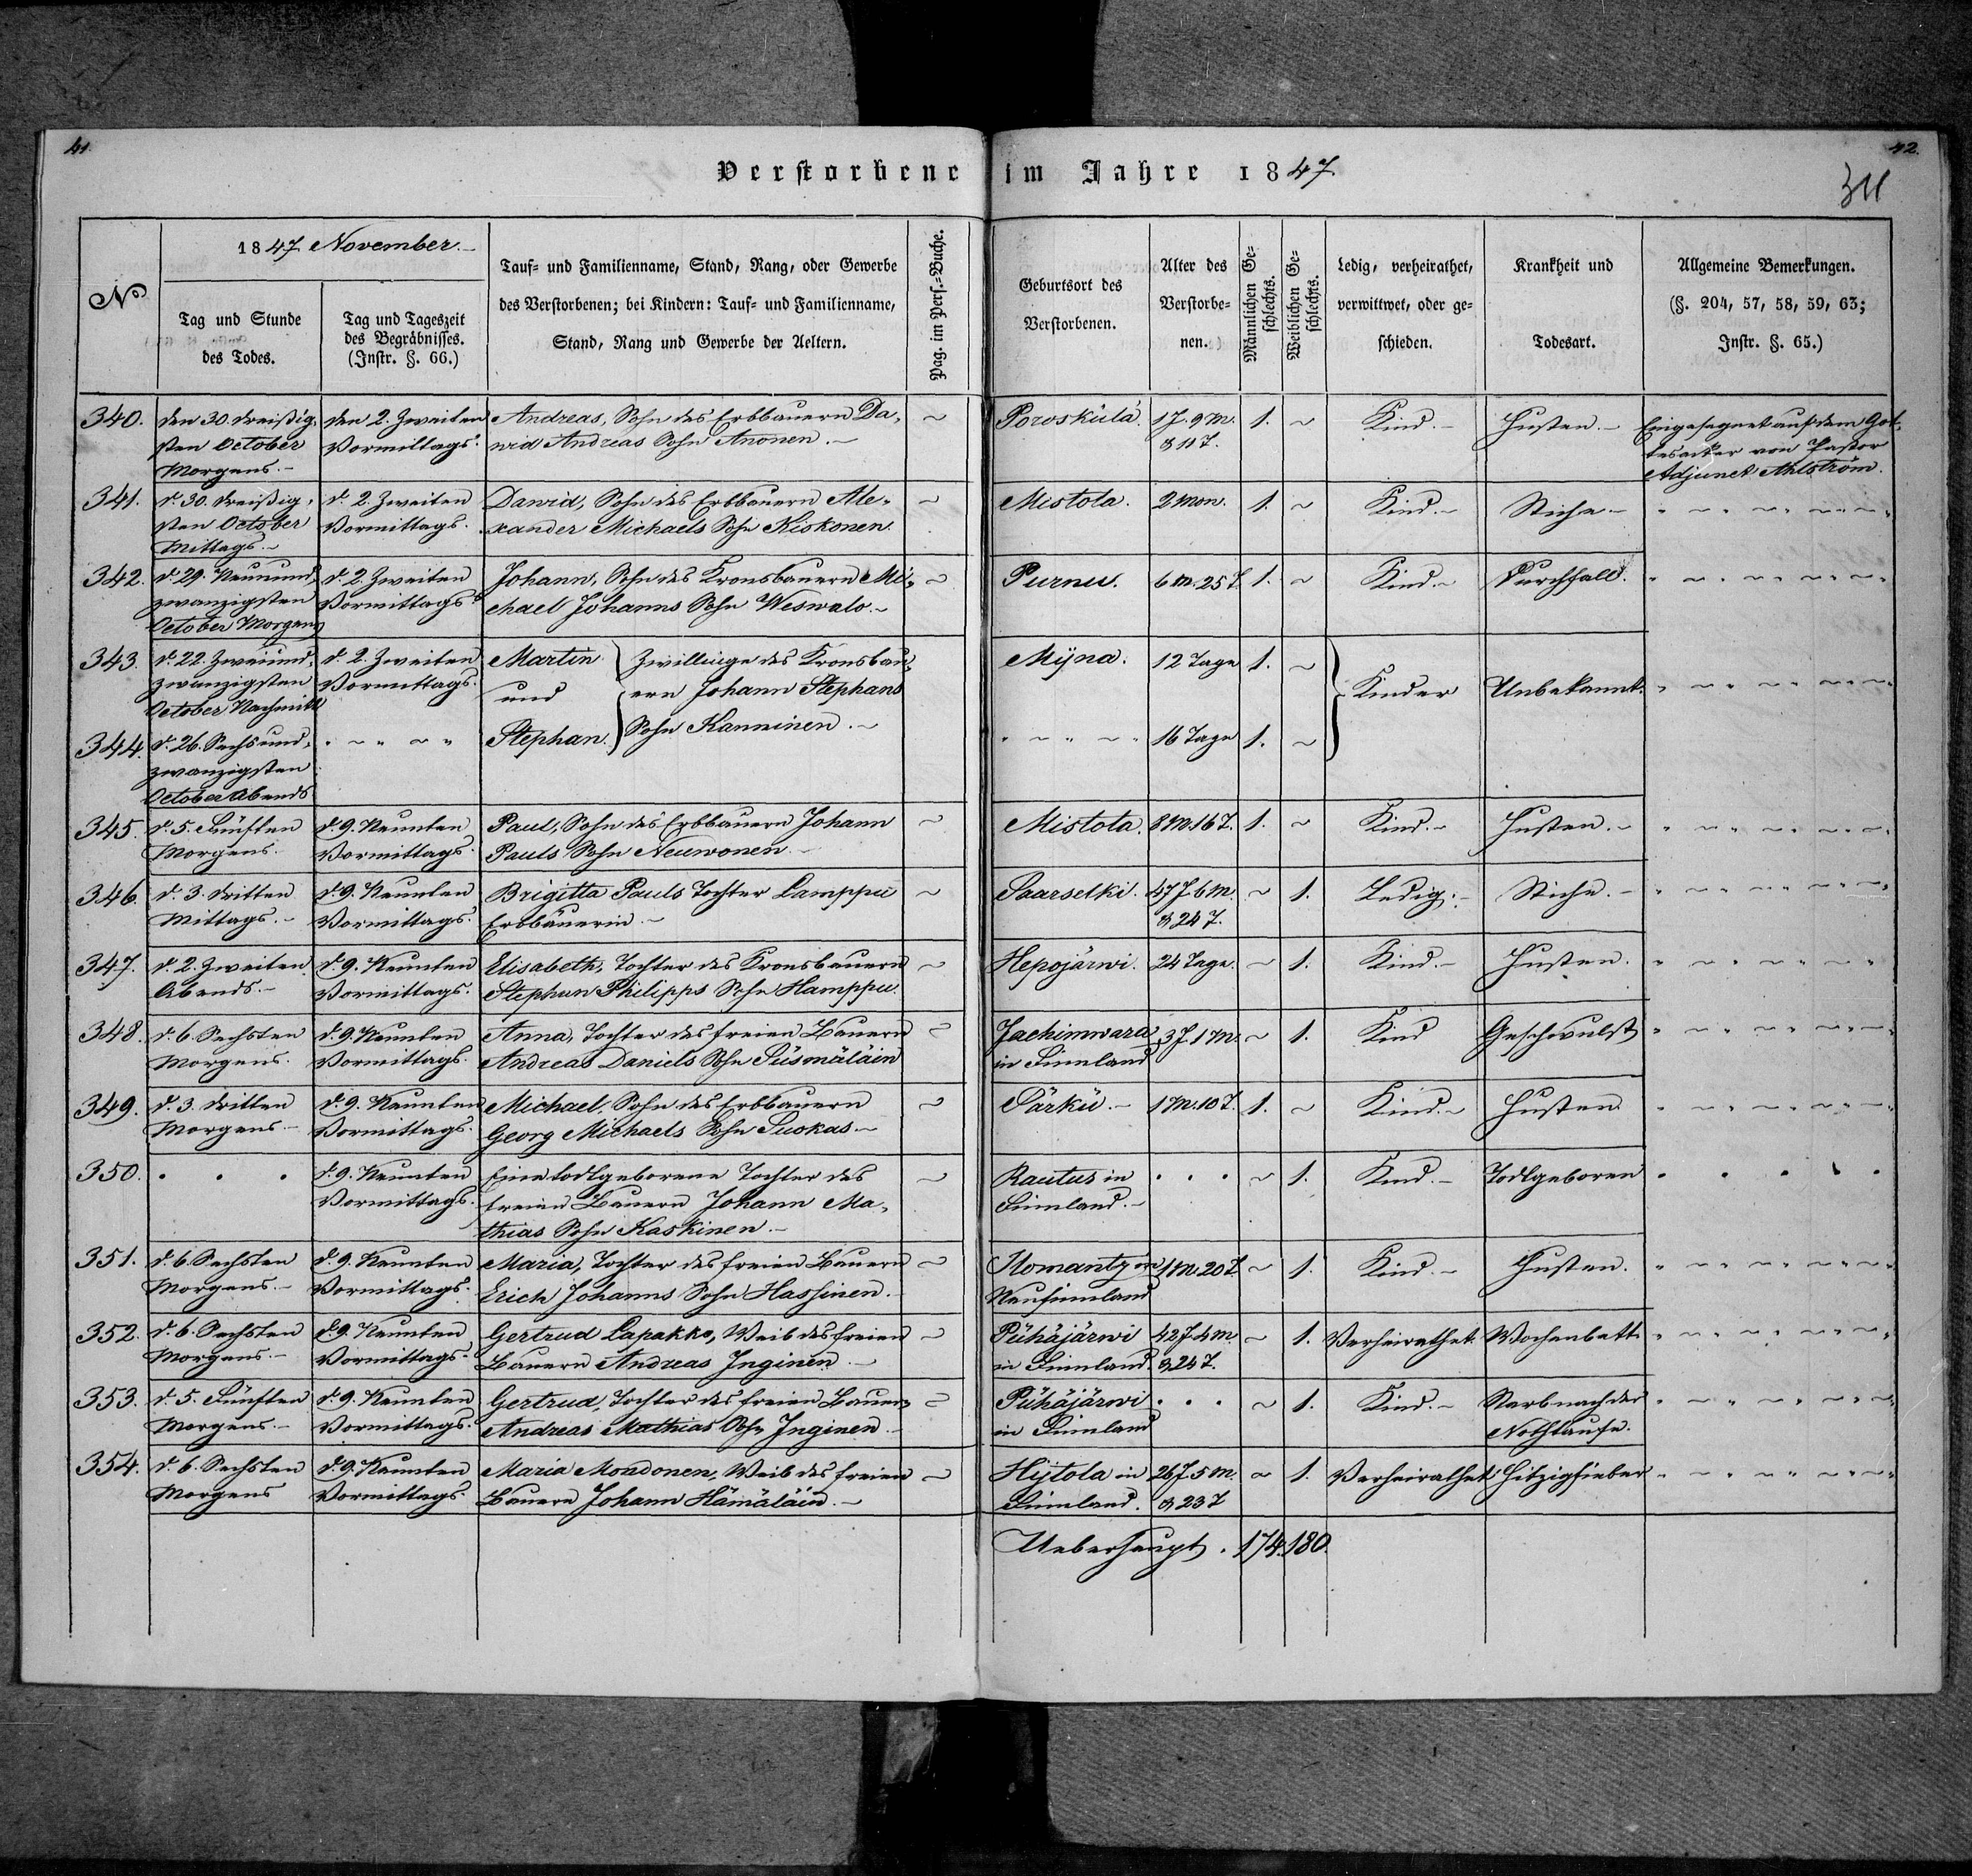 41.
42.
311
Verstorbene im Jahre 1847.
No
1847 November.
Tag und Stunde
des Todes.
Tag und Tageszeit
des Begräbnisses.
(Instr. §. 66.)
Tauf- und Familienname, Stand, Rang, oder Gewerbe
des Verstorbenen; bei Kindern: Tauf- und Familienname,
Stand, Rang und Gewerbe der Aeltern.
Pag. im Pers.-Buche.
Geburtsort des
Verstorbenen.
Alter des
Verstorbe-
nen.
Männlichen Ge-
schlechts.
Weiblichen Ge-
schlechts.
Ledig, verheirathet,
verwittwet, oder ge-
schieden.
Krankheit und
Todesart.
Allgemeine Bemerkungen.
(§. 204, 57, 58, 59, 63;
Instr. §. 65.)
340. den 30. dreißig, den 2. Zweiten Andreas, Sohn des Erbbauern Da, ~ Poroskülä. 1 J. 9 M. 1. ~ Kind.- Husten.- Eingesegnet auf dem Got,
sten October Vormittags. wid Andreas Sohn Anonen.- & 11 T. tesacker von Pastor
Morgens.- Adjunct Ahlström.
341. d. 30. dreißig, d. 2. Zweiten Dawid, Sohn des Erbbauern Ale, ~ Mistola. 2 Mon. 1. ~ Kind.- Stiche.- " ~ " ~ " ~ "
sten October Vormittags. xander Michaels Sohn Kiskonen.
Mittags.-
342. d. 29. Neunund, d. 2. Zweiten Johann, Sohn des Kronsbauern Mi, ~ Purnu. 6 M. 25 T. 1. ~ Kind.- Durchfall. " ~ " ~ " ~ "
zwanzigsten Vormittags. chael Johanns Sohn Weswalo.-
October Morgens
343. d. 22. Zweiund, d. 2. Zweiten Martin Zwillinge des Kronsbau, Mÿna. 12 Tage 1. ~
zwanzigsten Vormittags. und ern Johann Stephans Kinder Unbekannt. " ~ " ~ " ~ "
October Nachmitt
344. d. 26. Sechsund, " ~ " ~ " Stephan. Sohn Kanninen.- " ~ " ~ " 16 Tage 1. ~
zwanzigsten
October Abends
345. d. 5. Fünften d. 9. Neunten Paul, Sohn des Erbbauern Johann ~ Mistola. 8 M. 16 T. 1. ~ Kind.- Husten.- " ~ " ~ " ~ "
Morgens. Vormittags. Pauls Sohn Neuwonen.-
346. d. 3. dritten d. 9. Neunten Brigitta Pauls Tochter Lamppu ~ Saarselki. 47 J. 6 M. ~ 1. Ledig.- Stiche.- " ~ " ~ " ~ "
Mittags.- Vormittags. Erbbäuerin.- & 24 T.
347. d. 2. Zweiten d. 9. Neunten Elisabeth, Tochter des Kronsbauern ~ Hepojärwi. 24 Tage. ~ 1. Kind.- Husten. " ~ " ~ " ~ "
Abends.- Vormittags. Stephan Philipps Sohn Hamppu.
348. d. 6. Sechsten d. 9. Neunten Anna, Tochter des freien Bauern ~ Jachimwara 3 J. 1 M. ~ 1. Kind Geschwulst " ~ " ~ " ~ "
Morgens. Vormittags. Andreas Daniels Sohn Püsmäläin in Finnland
349. d. 3. dritten d. 9. Neunten Michael, Sohn des Erbbauern ~ Pärkü.- 1 M. 10 T. 1. ~ Kind.- Husten " ~ " ~ " ~ "
Morgens- Vormittags. Georg Michaels Sohn Suokas.-
350. . . . d. 9. Neunten Eine todtgeborene Tochter des ~ Rautus in . . . ~ 1. Kind.- Todtgeboren . . . . .
Vormittags. freien Bauern Johann Ma, Finnland.-
thias Sohn Kaskinen.-
351. d. 6. Sechsten d. 9. Neunten Maria, Tochter des freien Bauern ~ Ilomantz in 1 M. 20 T. ~ 1. Kind.- Husten. " ~ " ~ " ~ "
Morgens.- Vormittags. Erich Johanns Sohn Hassinen. Neufinnland
352. d. 6. Sechsten d. 9. Neunten Gertrud Lapakko, Weib des freien ~ Pühäjärwi 42 J. 4 M. ~ 1. Verheirathet Wochenbett. " ~ " ~ " ~ "
Morgens.- Vormittags. Bauern Andreas Inginen.- in Finnland. & 24 T.
353. d. 5. Fünften d. 9. Neunten Gertrud, Tochter des freien Bauern ~ Pühäjärwi . . . ~ 1. Kind.- Starb nach der " ~ " ~ " ~ "
Morgens.- Vormittags. Andreas Mathias Sohn Inginen.- in Finnland Nothtaufe.
354. d. 6. Sechsten d. 9. Neunten Maria Mondonen, Weib des freien ~ Hijtola in 26 J. 5 M. ~ 1. Verheirathet Hitzigfieber " ~ " ~ " ~ "
Morgens Vormittags. Bauern Johann Hämäläin.- Finnland. & 23 T
Ueberhaupt. 174. 180.